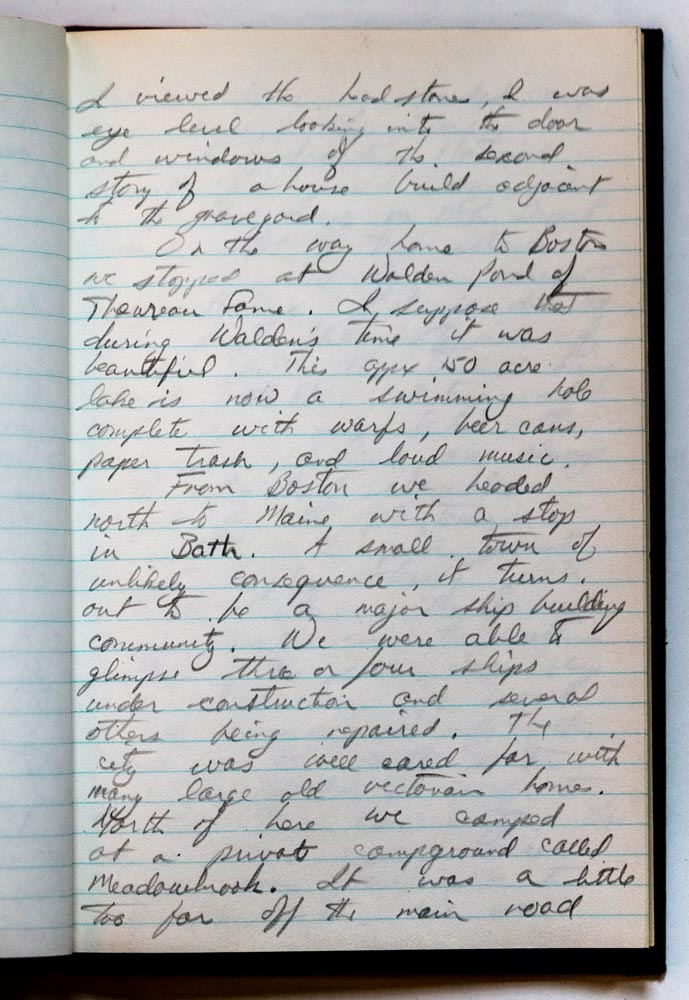 I viewed the headstones, I was
eye level looking into the door
and windows of the second
story of a house build adjacent
to the graveyard.
On the way home to Boston
we stopped at Walden Pond of
Thoureau fame. I suppose that
during Walden's time it was
beautiful. This appx 150 acre
lake is now a swimming hole
complete with warfs, beer cans,
paper trash, and loud music.
From Boston we headed
north to Maine with a stop
in Bath. A small town of
unlikely consequence, it turns
out to be a major ship building
community. We were able to
glimpse three or four ships
under construction and several
others being repaired. The
city was well cared for with
many large old victorian homes.
North of here we camped
at a private campground called
Meadowbrook. It was a little
too far off the main road